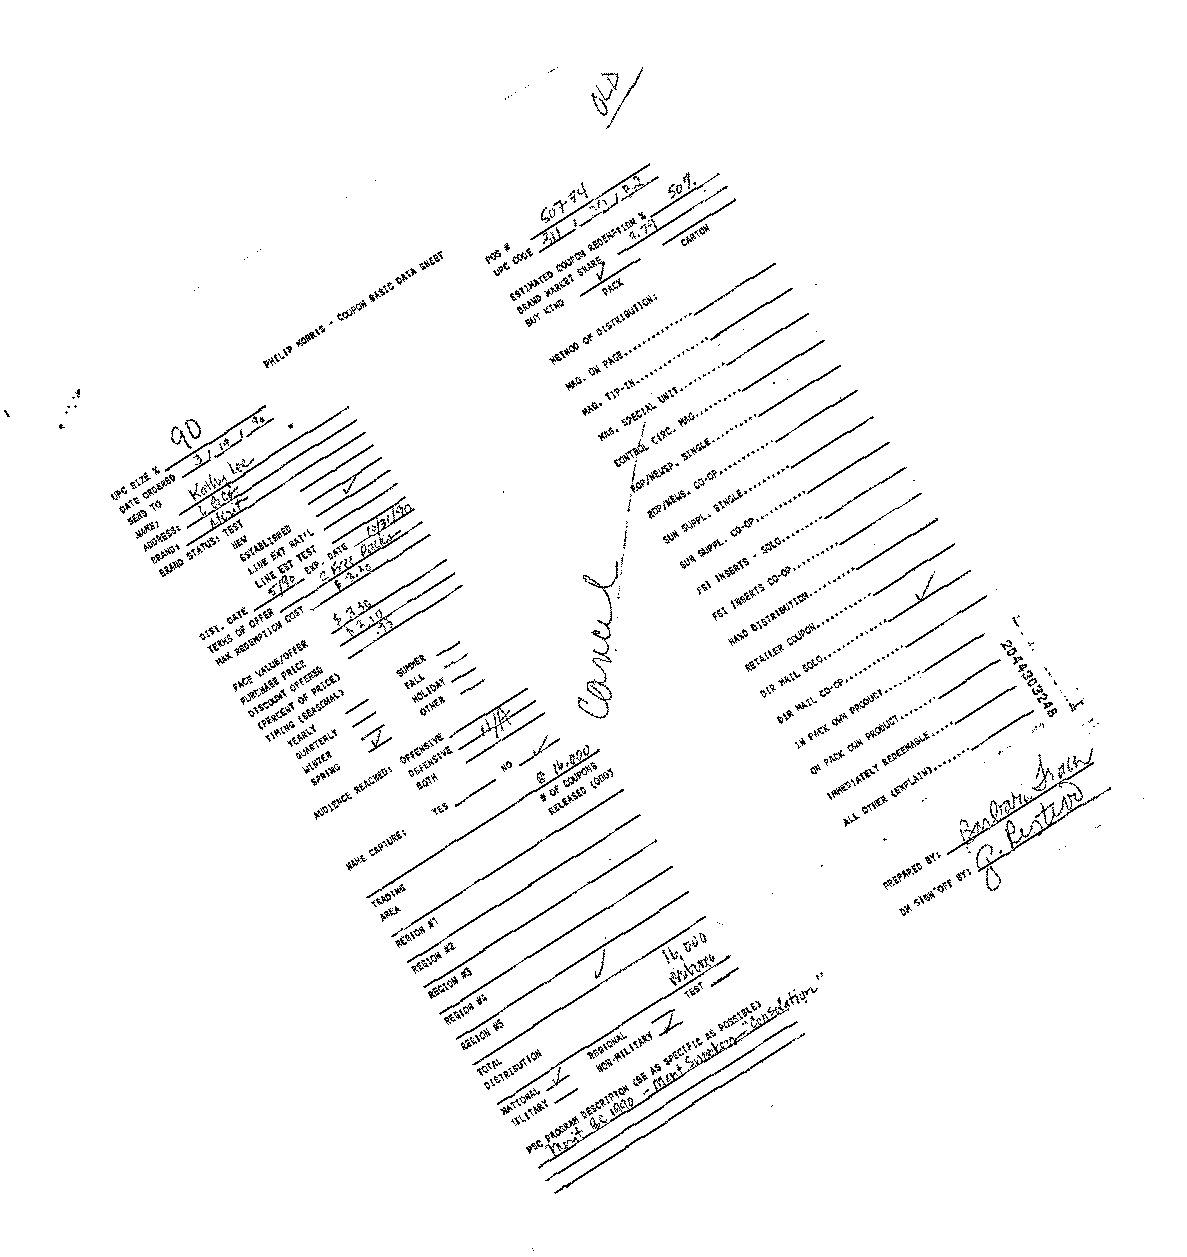 OLD
PHILIP MORRIS - COUPON BASIC DATA SHEET
UPC SIZE % 90
DATE ORDERED 3 / 19 / 90
SEND TO
NAME: Kathy Lee
ADDRESS:
BRAND: Merit
BRAND STATUS: TEST
NEW
ESTABLISHED ✓
LINE EXT NAT'L
LINE EXT TEST
DIST. DATE 5/90 EXP. DATE 10/31/90
TERMS OF OFFER 2 Free Packs
MAX REDEMPTION COST
FACE VALUE/OFFER
PURCHASE PRICE
DISCOUNT OFFERED
(PERCENT OF PRICE)
TIMING (SEASONAL)
YEARLY SUMMER
QUARTERLY FALL
WINTER HOLIDAY
SPRING ✓ OTHER
AUDIENCE REACHED: OFFENSIVE
DEFENSIVE N/A
BOTH
NAME CAPTURE: YES NO ✓
TRADING AREA
@ 16,000
# OF COUPONS
RELEASED (000)
REGION #1
REGION #2
REGION #3
REGION #4
REGION #5
TOTAL ✓ 16,000
DISTRIBUTION
NATIONAL ✓ REGIONAL TEST
MILITARY NON-MILITARY ✓
PSC PROGRAM DESCRIPTION (BE AS SPECIFIC AS POSSIBLE)
Merit 1990 - Merit Sweeps - "Consolation"
POS # 50774
UPC CODE
ESTIMATED COUPON REDEMPTION % 50%
BRAND MARKET SHARE
BUY KIND ✓ PACK CARTON
METHOD OF DISTRIBUTION:
MAG. ON PAGE
MAG. TIP-IN
MAG. SPECIAL UNIT
CONTROL CIRC. MAG.
ROP/NEWSP. SINGLE
ROP/NEWS. CO-OP
SUN SUPPL. SINGLE
SUN SUPPL. CO-OP
FSI INSERTS - SOLO
FSI INSERTS CO-OP
HAND DISTRIBUTION
RETAILER COUPON
DIR MAIL SOLO ✓
DIR MAIL CO-OP
IN PACK OWN PRODUCT
ON PACK OWN PRODUCT
IMMEDIATELY REDEEMABLE
ALL OTHER (EXPLAIN)
PREPARED BY: Barbara
DM SIGN OFF BY:
Cancel
2044303248